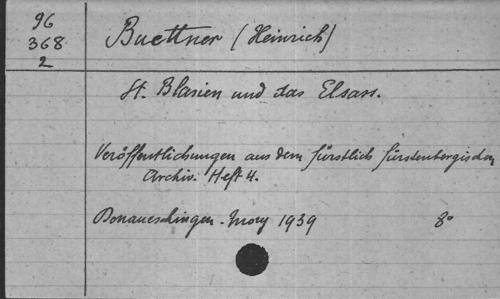 96
368
2
Buettner (Heinrich)
St. Blasien und das Elsass.
Veröffentlichungen aus dem fürstlich fürstenbergischen
Archiv. Heft 4.
Donaueschingen - Mory 1939 8°